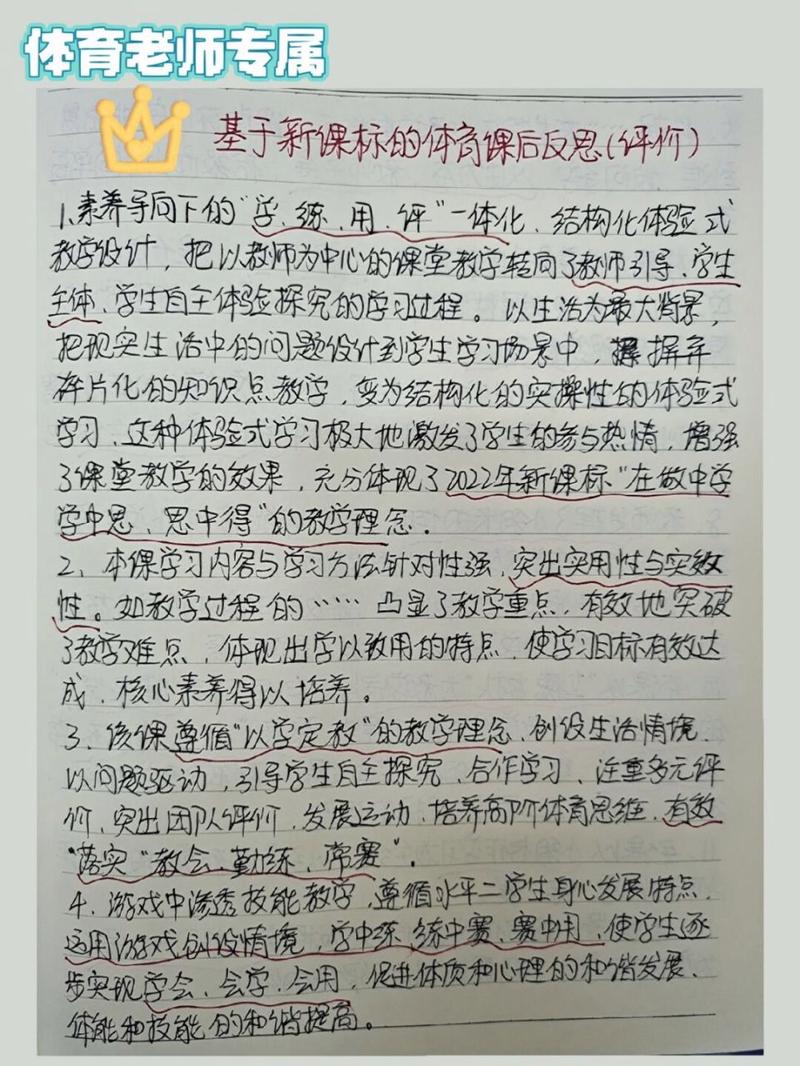 体育老师专属
基于新课标的体育课后反思(评价)
1.素养导向下的"学、练、用、评"一体化、结构化体验式
教学设计，把以教师为中心的课堂教学转向了教师引导、学生
主体、学生自主体验探究的学习过程。以生活为最大背景，
把现实生活中的问题设计到学生学习场景中，摒弃
碎片化的知识点教学，变为结构化的实操性的体验式
学习，这种体验式学习极大地激发了学生的参与热情，增强
了课堂教学的效果，充分体现了2022年新课标"在做中学
学中思、思中得"的教学理念。
2、本课学习内容与学习方法针对性强，突出实用性与实效
性。如教学过程的……凸显了教学重点，有效地突破
了教学难点，体现出学以致用的特点，使学习目标有效达
成，核心素养得以培养。
3、该课遵循"以学定教"的教学理念，创设生活情境，
以问题驱动，引导学生自主探究、合作学习，注重多元评
价，突出团队评价，发展运动，培养高阶体育思维，有效
"落实"教会、勤练、常赛"。
4、游戏中渗透技能教学，遵循水平二学生身心发展特点，
运用游戏创设情境，学中练、练中赛、赛中用，使学生逐
步实现学会、会学、会用，促进体质和心理的和谐发展、
体能和技能的和谐提高。